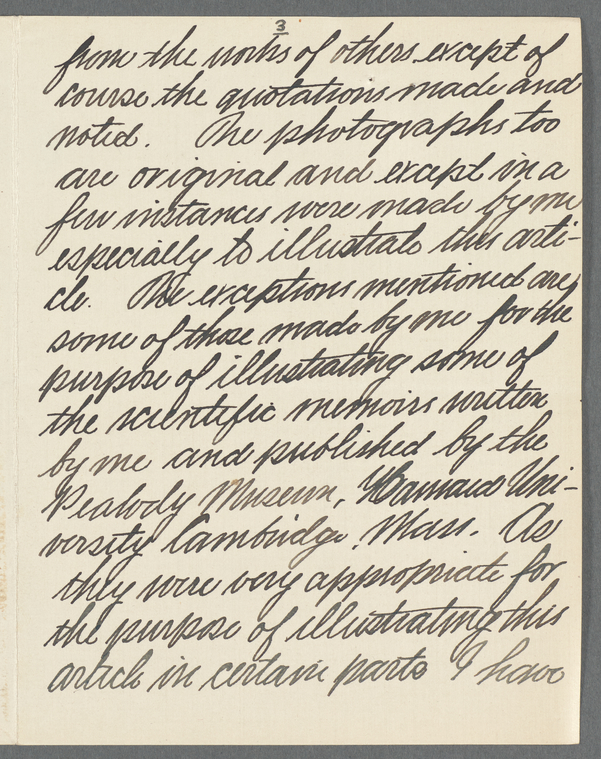 3
from the works of others except of
course the quotations made and
noted. The photographs too
are original and except in a
few instances were made by me
especially to illustrate this arti-
cle. The exceptions mentioned are
some of those made by me for the
purpose of illustrating some of
the scientific memoirs written
by me and published by the
Peabody Museum, Harvard Uni-
versity Cambridge, Mass. As
they were very appropriate for
the purpose of illustrating this
article in certain parts I have